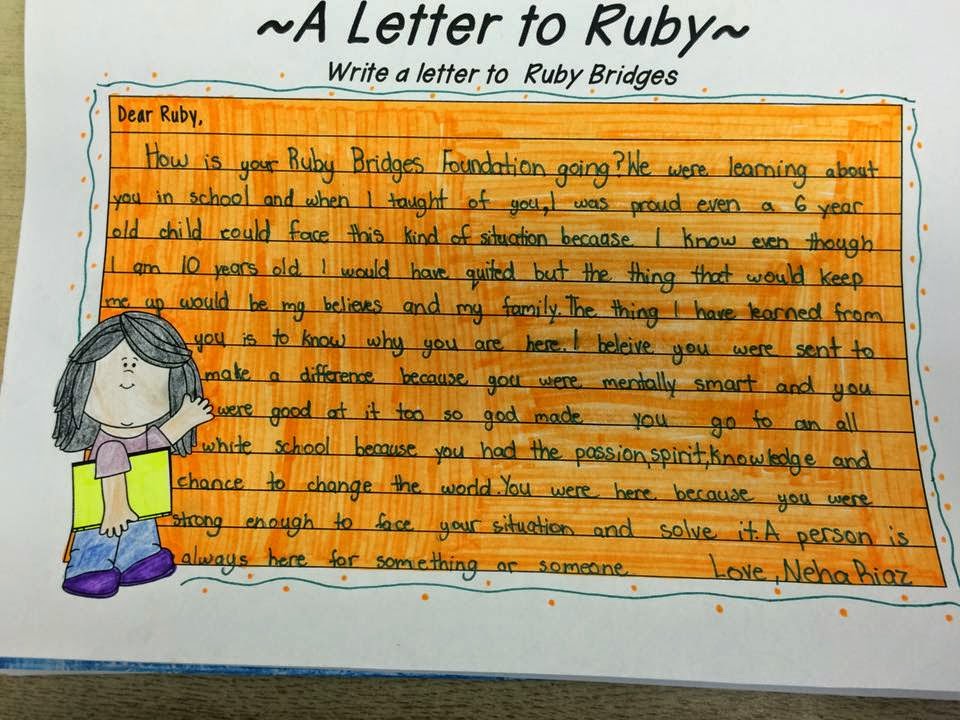 ~A Letter to Ruby~
Write a letter to Ruby Bridges
Dear Ruby,
How is your Ruby Bridges Foundation going? We were learning about
you in school and when I taught of you, I was proud even a 6 year
old child could face this kind of situation because I know even though
I am 10 years old I would have quited but the thing that would keep
me up would be my believes and my family. The thing I have learned from
you is to know why you are here. I beleive you were sent to
make a difference because you were mentally smart and you
were good at it too so god made you go to an all
white school because you had the passion, spirit, knowledge and
chance to change the world. You were here because you were
strong enough to face your situation and solve it. A person is
always here for something or someone Love, Neha Riaz